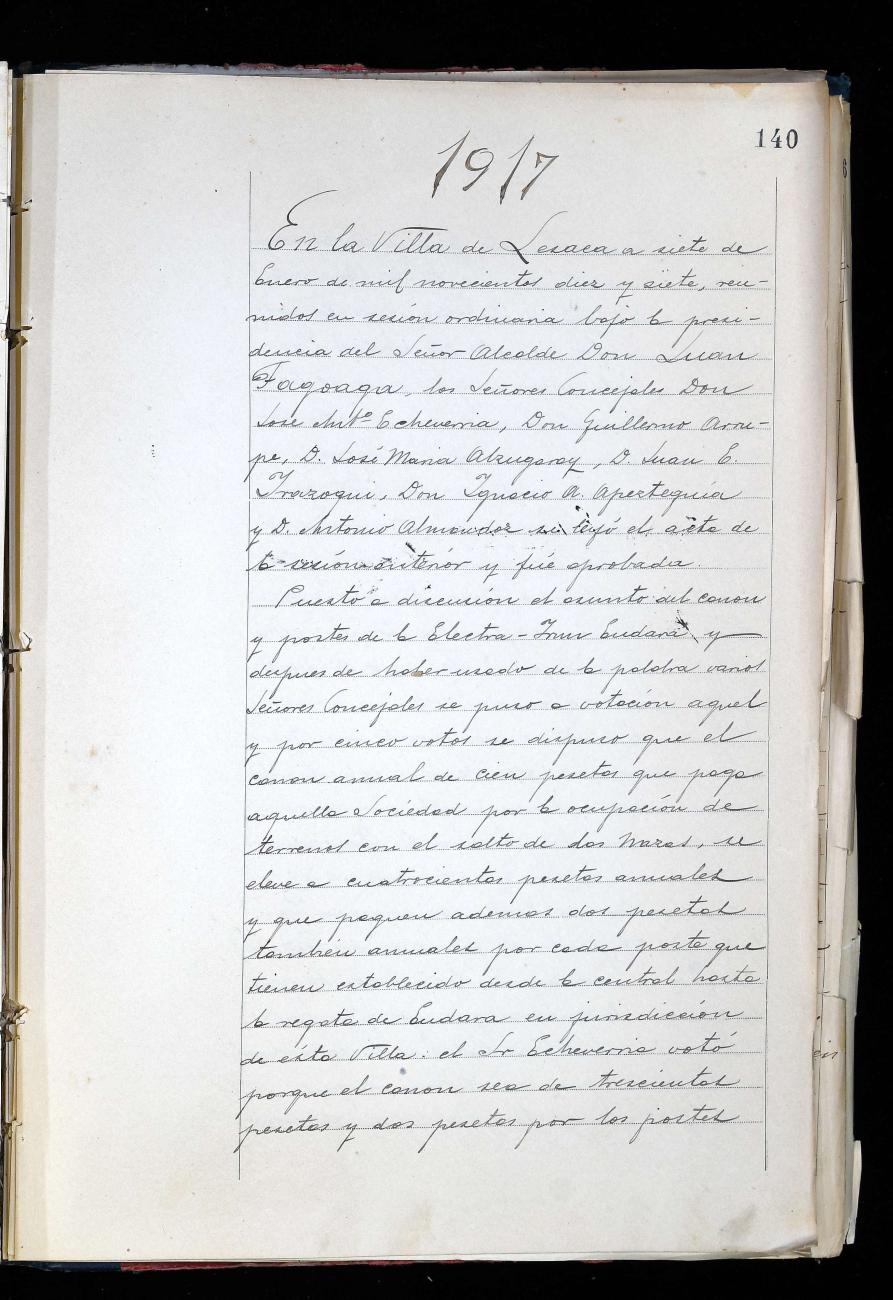 140
1917
En la Villa de Lesaca a siete de
Enero de mil novecientos diez y siete, reu-
nidos en sesión ordinaria bajo la presi-
dencia del Señor Alcalde Don Juan
Fagoaga, los Señores Concejales Don
José Antº Echeverria, Don Guillermo Arru-
pe, D. José Maria Alzugaray, D. Juan E.
Irazoqui, Don Ignacio A. Apezteguía
y D. Antonio Almandoz se leyó el acta de
la sesión anterior y fué aprobada.
Puesto a discusión el asunto del canon
y postes de la Electra-Irun Endara y
despues de haber usado de la palabra varios
Señores Concejales se puso a votación aquel
y por cinco votos se dispuso que el
canon anual de cien pesetas que paga
aquella Sociedad por la ocupación de
terrenos con el salto de dos Nazas, se
eleve a cuatrocientas pesetas anuales
y que paguen ademas dos pesetas
también anuales por cada poste que
tienen establecido desde la central hasta
la regata de Endara en jurisdicción
de ésta Villa: el Sr Echeverria votó
porque el canon sea de trescientas
pesetas y dos pesetas por los postes